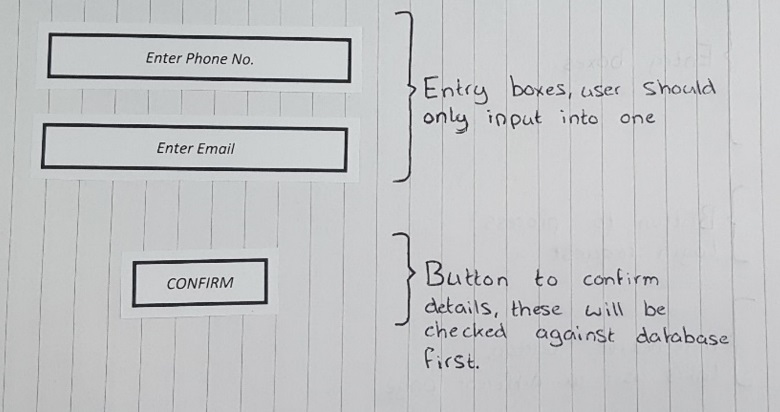 Enter Phone No.
Entry boxes, user should
only input into one
Enter Email
CONFIRM
Button to confirm
details, these will be
checked against database
first.